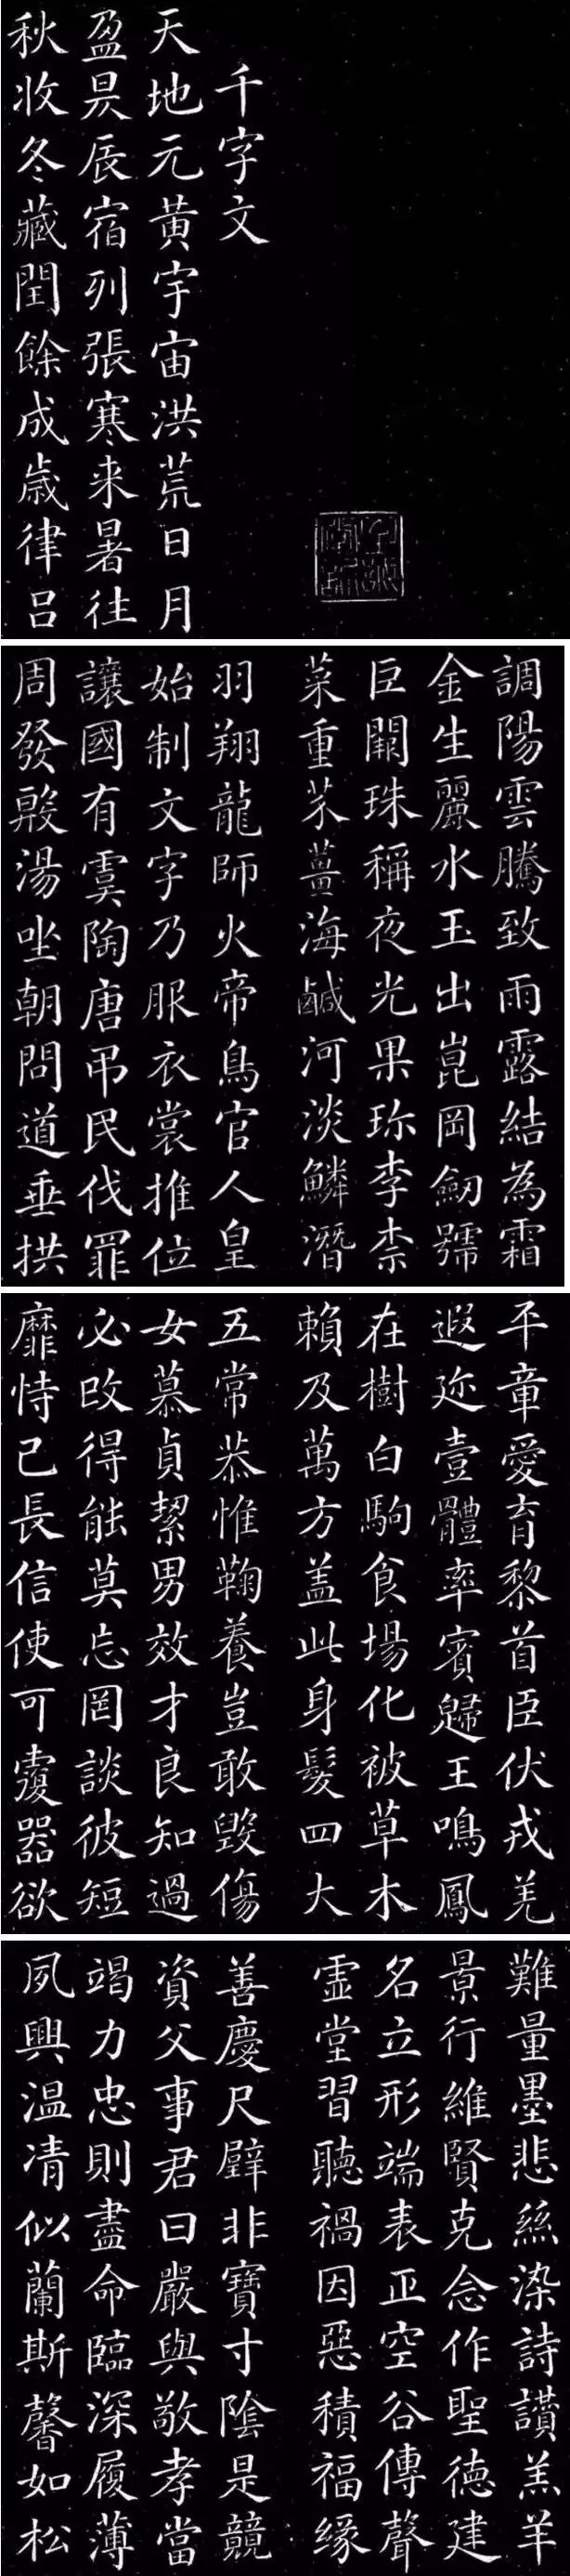 千字文
天地元黃宇宙洪荒日月
盈昃辰宿列張寒来暑往
秋收冬藏閏餘成歲律呂
調陽雲騰致雨露結為霜
金生麗水玉出崑岡劒號
巨闕珠稱夜光果珎李柰
菜重芥薑海鹹河淡鱗潛
羽翔龍師火帝鳥官人皇
始制文字乃服衣裳推位
讓國有虞陶唐吊民伐罪
周發殷湯坐朝問道垂拱
平章愛育黎首臣伏戎羌
遐迩壹體率賓歸王鳴鳳
在樹白駒食場化被草木
賴及萬方盖此身髮四大
五常恭惟鞠養豈敢毀傷
女慕貞絜男效才良知過
必改得能莫忘罔談彼短
靡恃己長信使可覆器欲
難量墨悲絲染詩讃羔羊
景行維賢克念作聖德建
名立形端表正空谷傳聲
虛堂習聽禍因惡積福緣
善慶尺璧非寶寸陰是競
資父事君曰嚴與敬孝當
竭力忠則盡命臨深履薄
夙興温凊似蘭斯馨如松